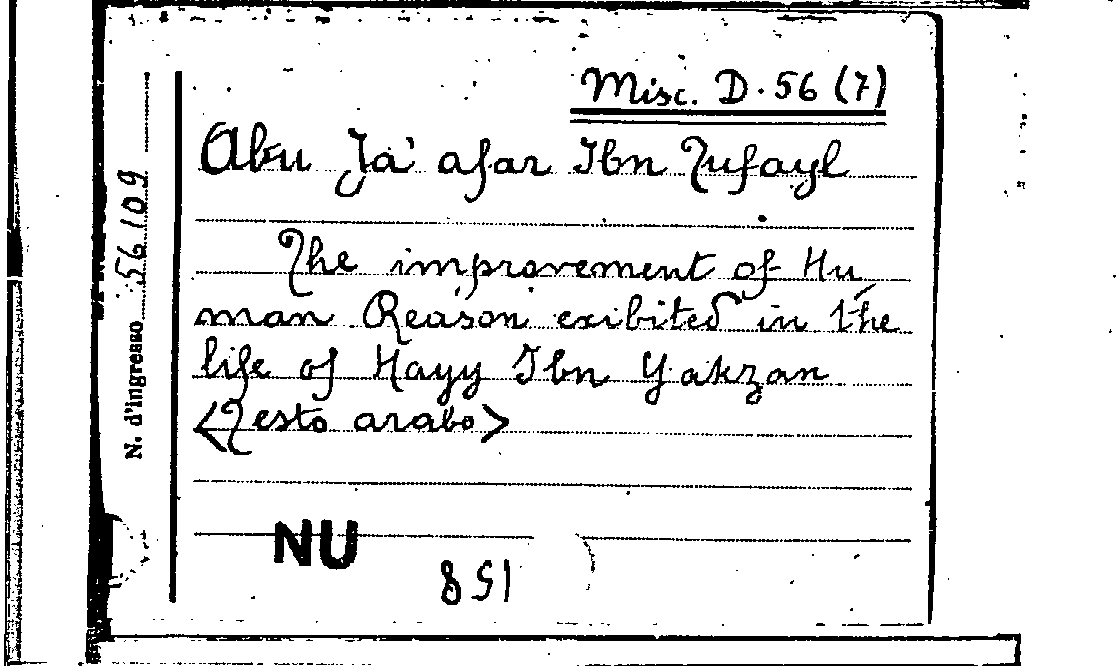 Misc. D. 56 (7)
Abu Ja' afar Ibn Tufayl
The improvement of Hu
man Reason exibited in the
life of Hayy Ibn Yakzan
<Testo arabo>
NU
158
N. d'ingresso 56109